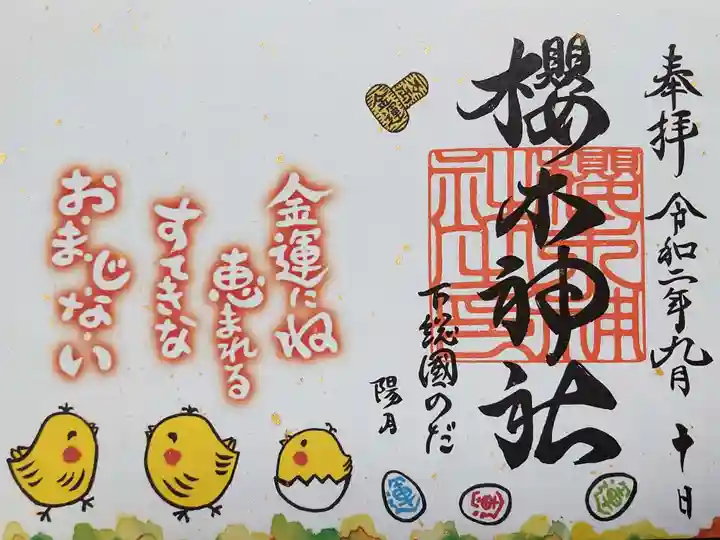 奉拝 令和二年九月十日
櫻木神社
下総國のだ
陽月
金運
金運にね
恵まれる
すてきな
おまじない